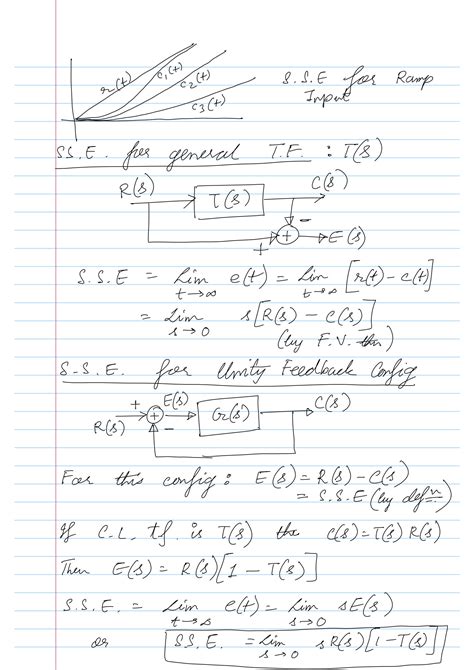 r(t) c₁(t) c₂(t) c₃(t)
S.S.E for Ramp
Input
S.S.E. for general T.F. : T(s)
R(s) T(s) C(s)
−
+ + E(s)
S.S.E = Lim t→∞ e(t) = Lim t→∞ [r(t) − c(t)]
= Lim s→0 s[R(s) − C(s)]
(by F.V. thm)
S.S.E. for Unity Feedback Config
+ + E(s) G(s) C(s)
R(s) −
For this config: E(s) = R(s) − C(s)
= S.S.E (by defn.)
If C.L. tf. is T(s) C(s) = T(s) R(s)
Then E(s) = R(s)[1 − T(s)]
S.S.E. = Lim t→∞ e(t) = Lim s→0 sE(s)
or S.S.E. = Lim s→0 sR(s)[1 − T(s)]